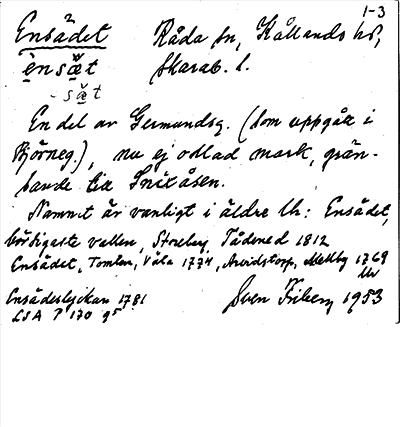 1-3
Ensädet Råda sn, Kållands hd,
ènsä̀t Skarab. l.
-sä̀t
En del av Germundsg. (som uppgår i
Björneg.), nu ej odlad mark, grän-
sande till Snixåsen.
Namnet är vanligt i äldre lh: Ensädet,
bördigaste vallen, Storeby, Tådened 1812
Ensädet, Tomten, Våla 1774, Arvidstorp, Mellby 1769
Ensädeslyckan 1781
LSA P 170 95
Sven Friberg 1953